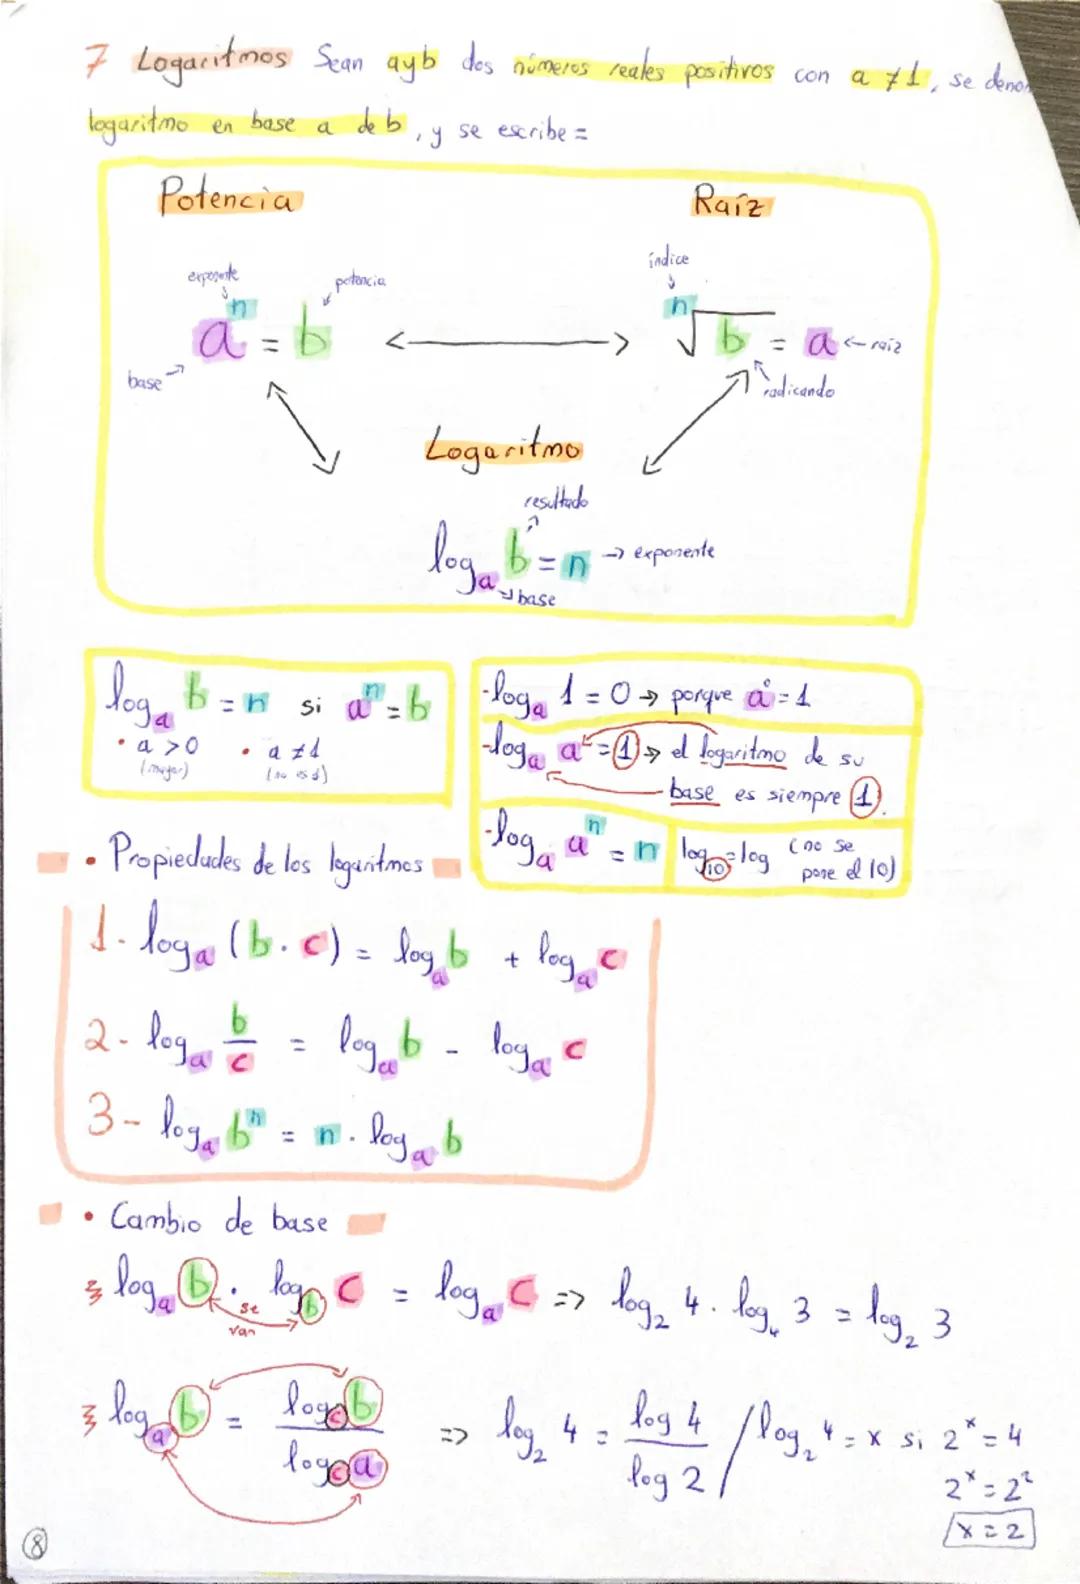 7 Logaritmos Sean a y b dos números reales positivos con a ≠ 1, se denom
logaritmo en base a de b, y se escribe =
Potencia
Raíz
exponente
potencia
índice
aⁿ = b
ⁿ√b = a ← raíz
base
radicando
Logaritmo
resultado
logₐ b = n → exponente
base
logₐ b = n si aⁿ = b
• a > 0 • a ≠ 1
(mayor) (no es 1)
- logₐ 1 = 0 → porque a⁰ = 1
- logₐ a¹ = 1 → el logaritmo de su
base es siempre 1.
- logₐ aⁿ = n
log₁₀ = log (no se
pone el 10)
• Propiedades de los logaritmos
1- logₐ (b · c) = logₐ b + logₐ c
2- logₐ b/c = logₐ b - logₐ c
3- logₐ bⁿ = n · logₐ b
• Cambio de base
logₐ b · log_b c = logₐ c => log₂ 4 · log₄ 3 = log₂ 3
se
van
logₐ b = log_c b / log_c a => log₂ 4 = log 4 / log 2 / log₂ 4 = x si 2ˣ = 4
2ˣ = 2²
x = 2
8